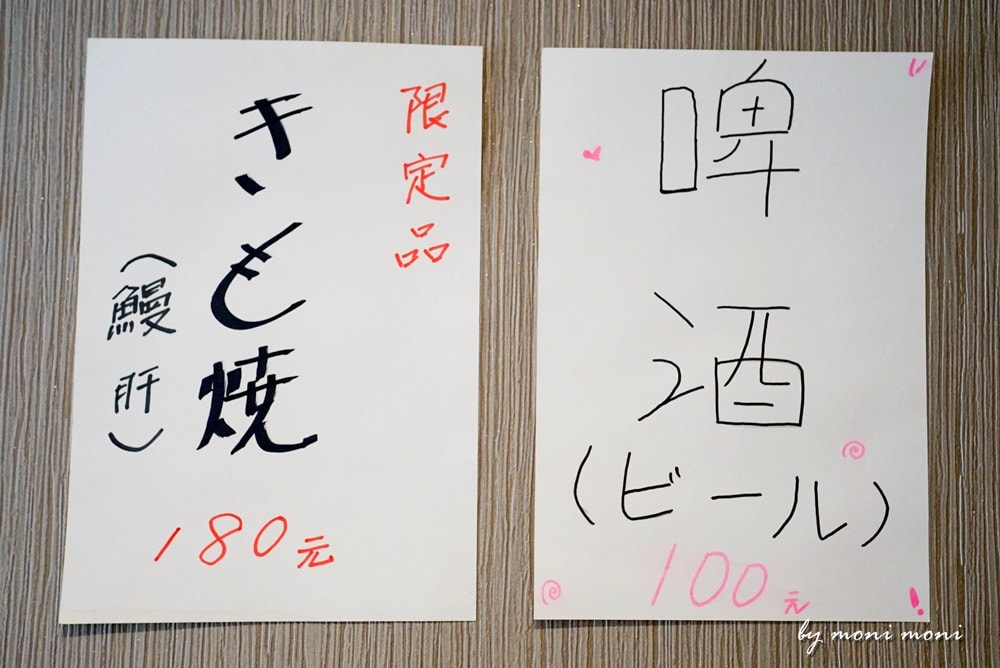 限定品
きも焼
（鰻肝）
180元
啤酒
（ビール）
100元
by moni moni